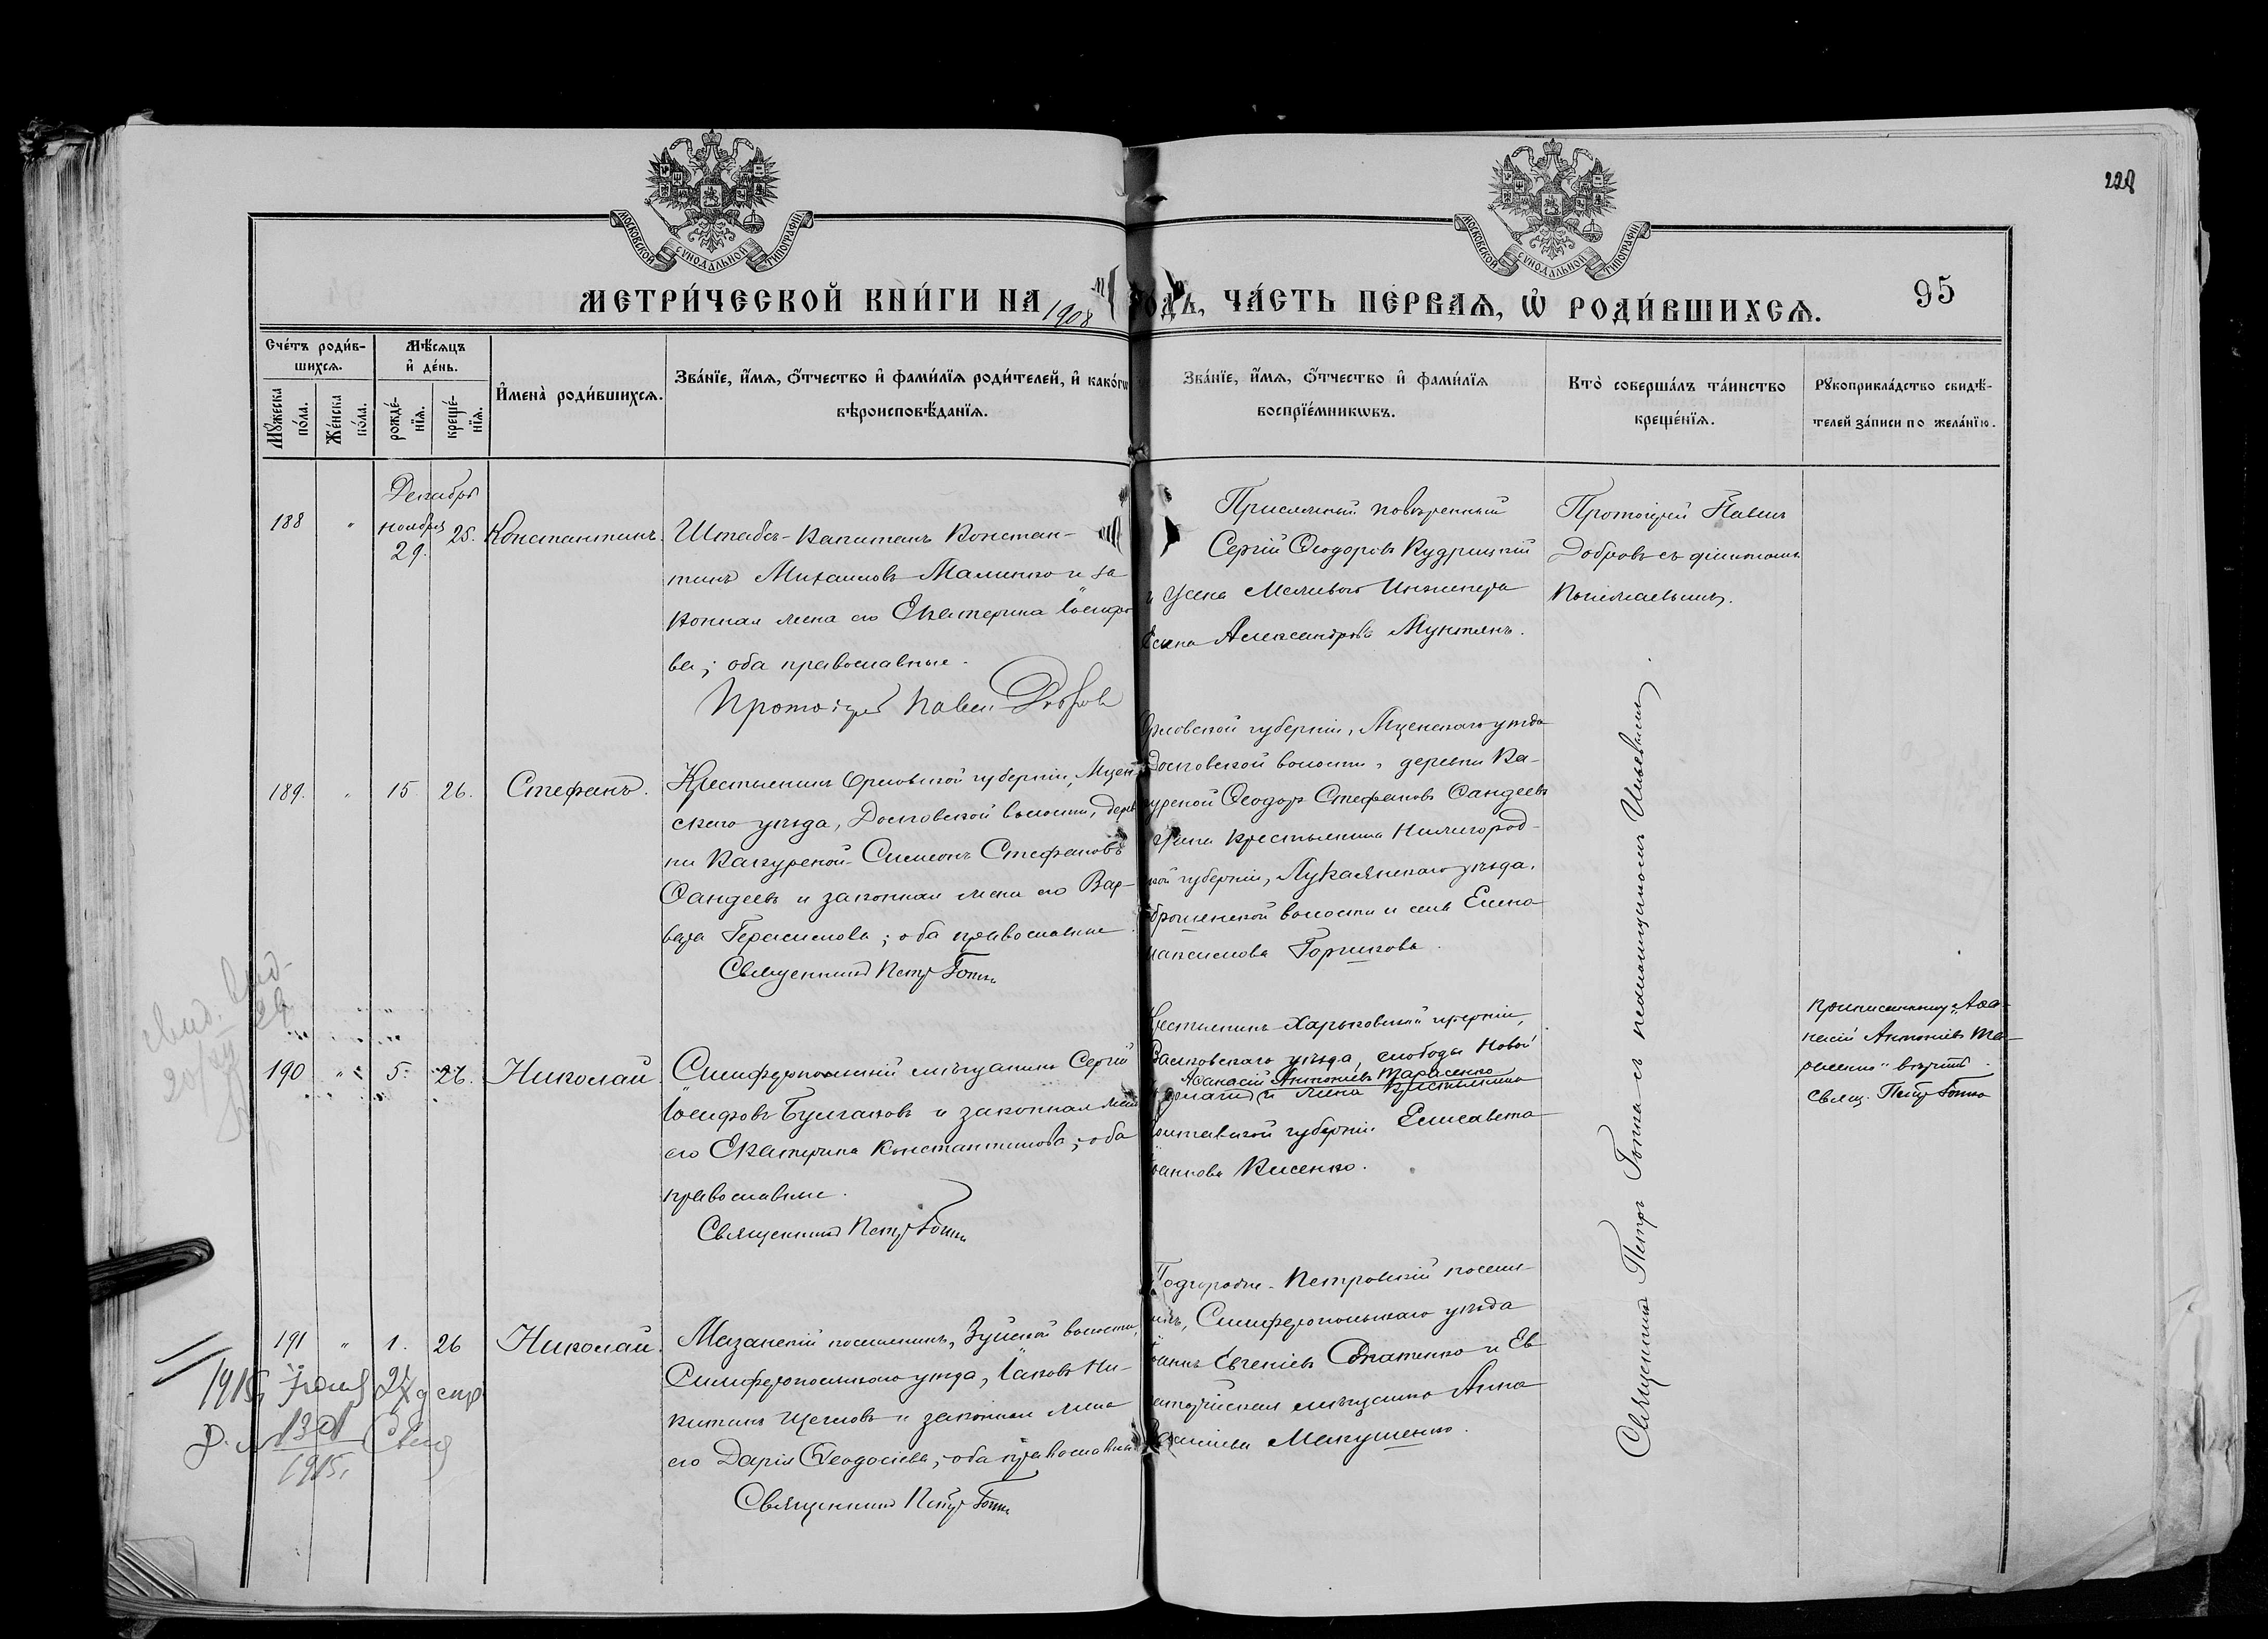 228
МОСКОВСКОЙ СУНОДАЛЬНОЙ ТИПОГРАФІИ
МОСКОВСКОЙ СУНОДАЛЬНОЙ ТИПОГРАФІИ
МЕТРИ́ЧЕСКОЙ КНИ́ГИ НА 1908 ГОДЪ, ЧА́СТЬ ПЕ́РВАѦ, Ѡ҆ РОДИ́ВШИХСѦ. 95
Сче́тъ роди́в-
шихсѧ.
Мѣ́сѧцъ
и҆ де́нь.
Мꙋ́жеска
по́ла.
Же́нска
по́ла.
рожде́-
нїѧ.
креще́-
нїѧ.
И҆мена̀ роди́вшихсѧ.
Зва́нїе, и҆́мѧ, ѻ҆́тчество и҆ фами́лїѧ роди́телей, и҆ како́гѡ
вѣроисповѣ́данїѧ.
Зва́нїе, и҆́мѧ, ѻ҆́тчество и҆ фами́лїѧ
воспрїе́мникѡвъ.
Кто̀ соверша́лъ та́инство
креще́нїѧ.
Рꙋкоприкла́дство свидѣ́-
телей за́писи по жела́нїю.
Декабрь
188 " ноября 29. 25. Константинъ.
Штабсъ-Капитанъ Констан-
тинъ Михаиловъ Маменко и за
конная жена его Екатерина Іосифо
ва; оба православные.
Протоіерей Павелъ Добровъ
Присяжный повѣренный
Сергій Ѳеодоровъ Кудрицкій
и жена Инженера
Александрова Мунтянъ.
Протоіерей Павелъ
Добровъ съ
189. " 15 26. Стефанъ.
Крестьянинъ Орловской губерніи, Мцен-
скаго уѣзда, Долговской волости, дерев
ни Каңурской Симеонъ Стефановъ
Ѳандеевъ и законная жена его Вар-
вара Герасимова; оба православные.
Священникъ Петръ Гопка
Орловской губерніи, Мценскаго уѣзда
Долговской волости, деревни Ка-
Ѳеодоръ Стефановъ Ѳандеевъ
и жена крестьянина Нижегород-
ской губерніи, Лукаянскаго уѣзда,
волости и села Елена
Максимова Горшкова.
190 " 5. 26. Николай.
Симферопольскій мѣщанинъ Сергій
Іосифовъ Булгаковъ и законная жена
его Екатерина Константинова; оба
православные.
Священникъ Петръ Гопка
Крестьянинъ Харьковской губерніи,
Валковскаго уѣзда, слободы Новой
Аѳанасій Антоніевъ Тарасенко
и жена крестьянина
Полтавской губерніи Елисавета
Іоаннова Кисенко.
Приписанному „Аѳа-
насій Антоніевъ Та-
расенко" вѣрить.
Свящ. Петръ Гопка
191 " 1. 26 Николай.
Мазанскій поселянинъ, Зуйской волости,
Симферопольскаго уѣзда, Іаковъ Ни-
китинъ Щегловъ и законная жена
его Дарія Ѳеодосіева; оба православные
Священникъ Петръ Гопка
Подгородне-Петровскій поселя-
нинъ, Симферопольскаго уѣзда
Іоаннъ Евгеніевъ и Ев-
паторійская мѣщанка Анна
Макушенко.
Священникъ Петръ Гопка съ псаломщикомъ Ильевымъ.
1915 г.
1301
1915 г.